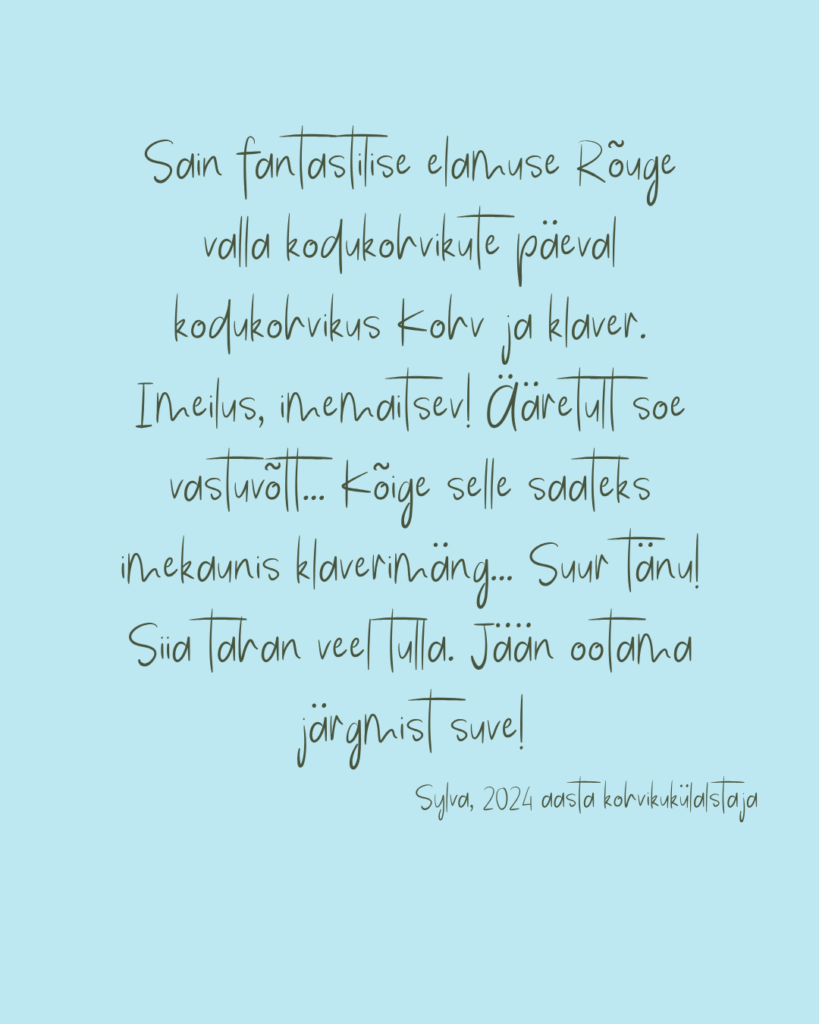 Sain fantastilise elamuse Rõuge
valla kodukohvikute päeval
kodukohvikus Kohv ja klaver.
Imeilus, imemaitsev! Ääretult soe
vastuvõtt... Kõige selle saateks
imekaunis klaverimäng... Suur tänu!
Siia tahan veel tulla. Jään ootama
järgmist suve!
Sylva, 2024 aasta kohvikukülalstaja